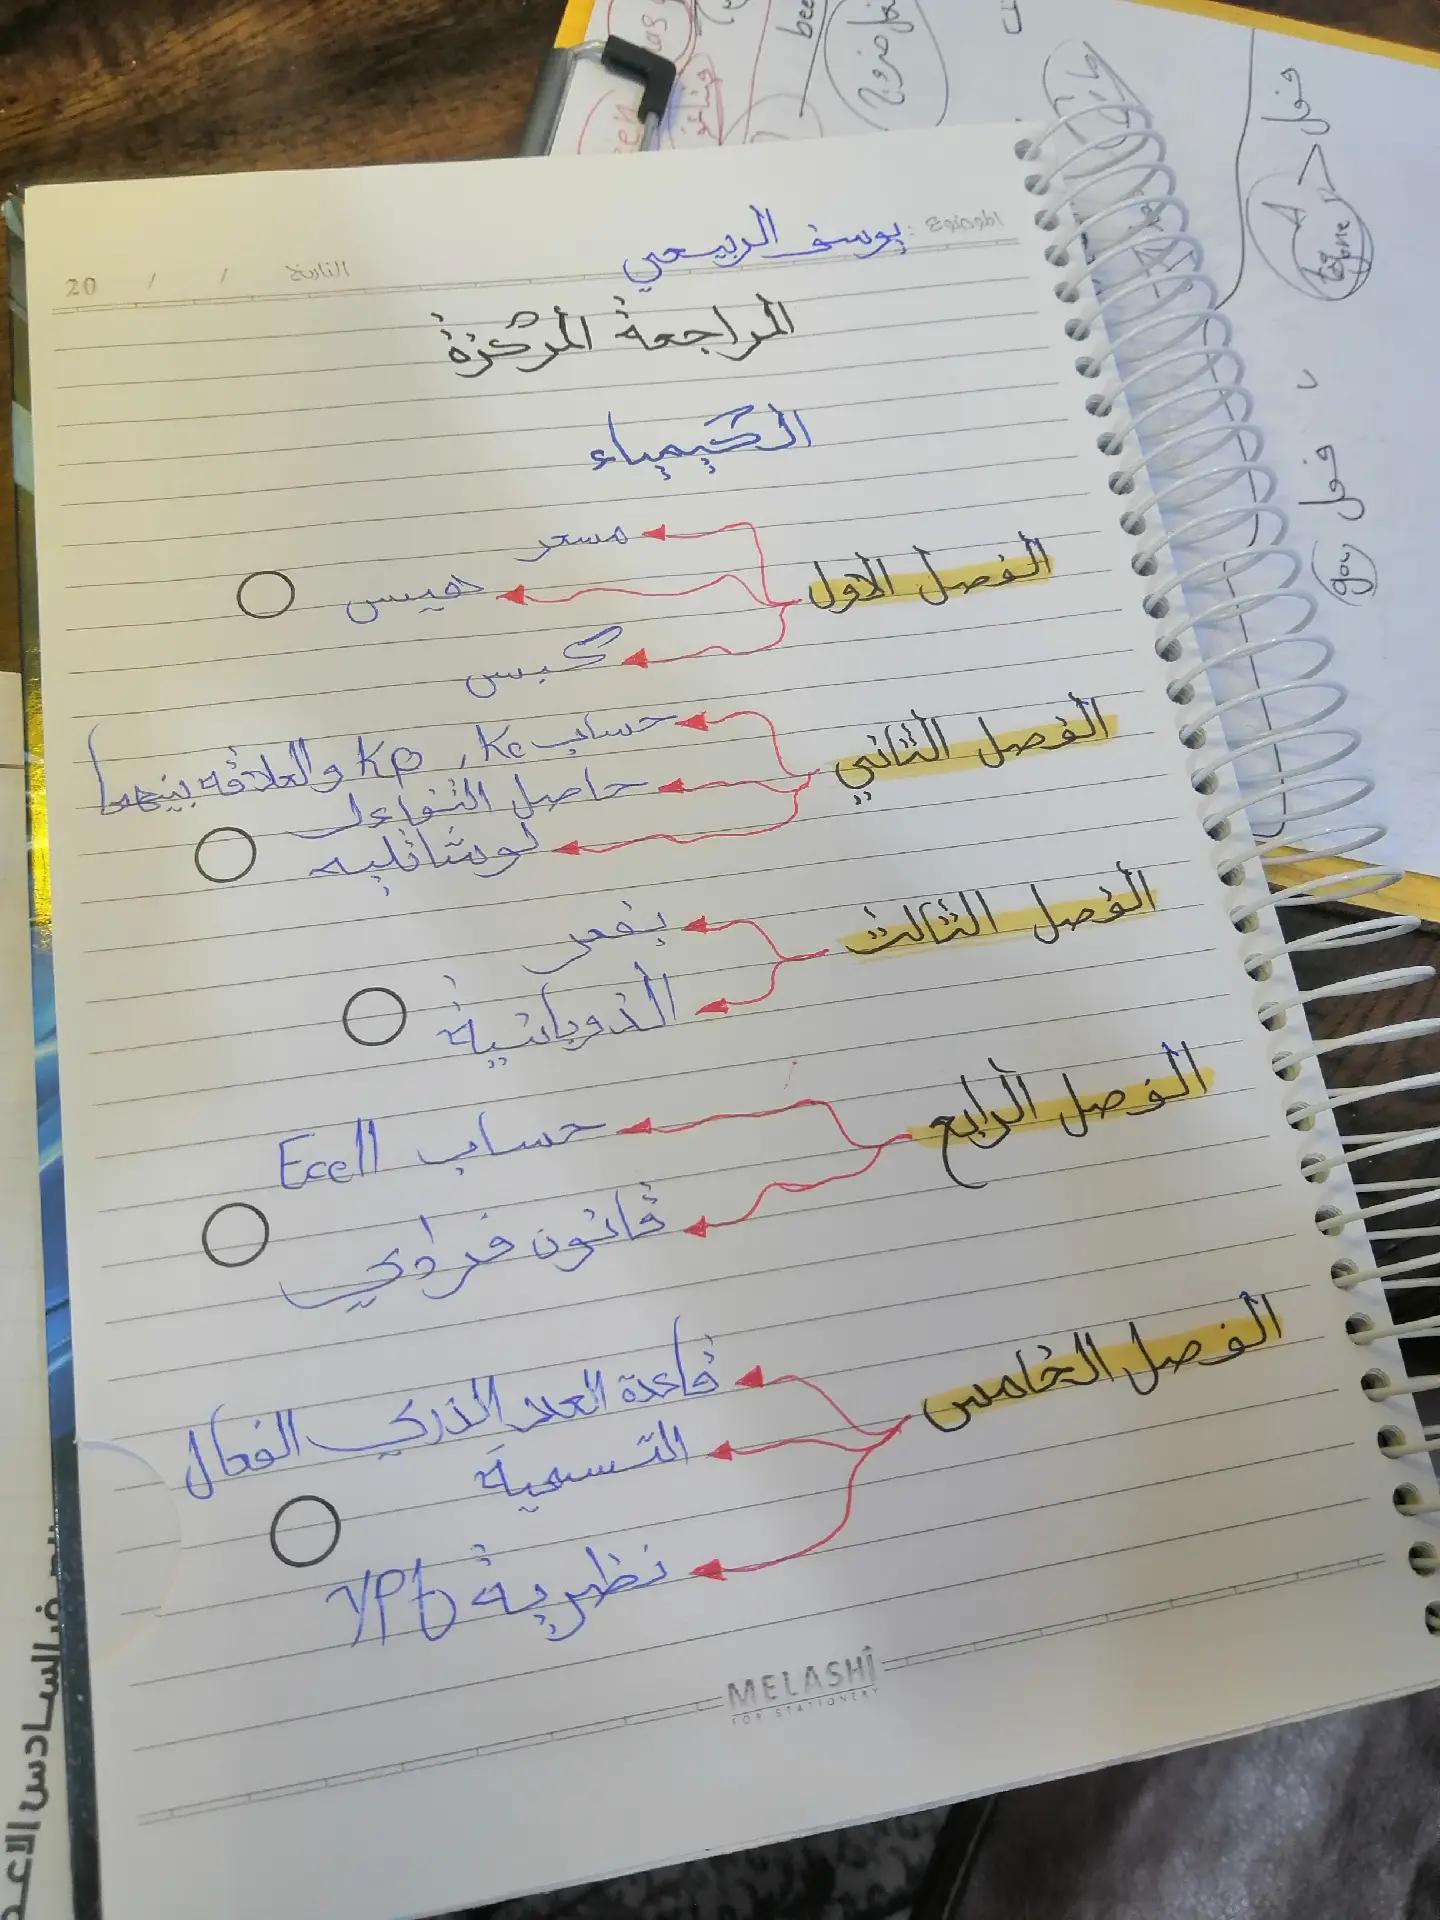 الموضوع: يوسف الربيعي
التاريخ / / 20
المراجعة المركزة
الكيمياء
الفصل الاول
مسعر
هيس
كبس
الفصل الثاني
حساب Kp , Kc والعلاقه بينهما
حاصل التفاعل
لوشاتليه
الفصل الثالث
بفعر
الذوبانية
الفصل الرابع
حساب Ecell
قانون فرداي
الفصل الخامس
قاعدة العدد الذري الفعال
التسمية
نظرية
MELASHI
FOR STATIONERY
فول > A
فول
السادس